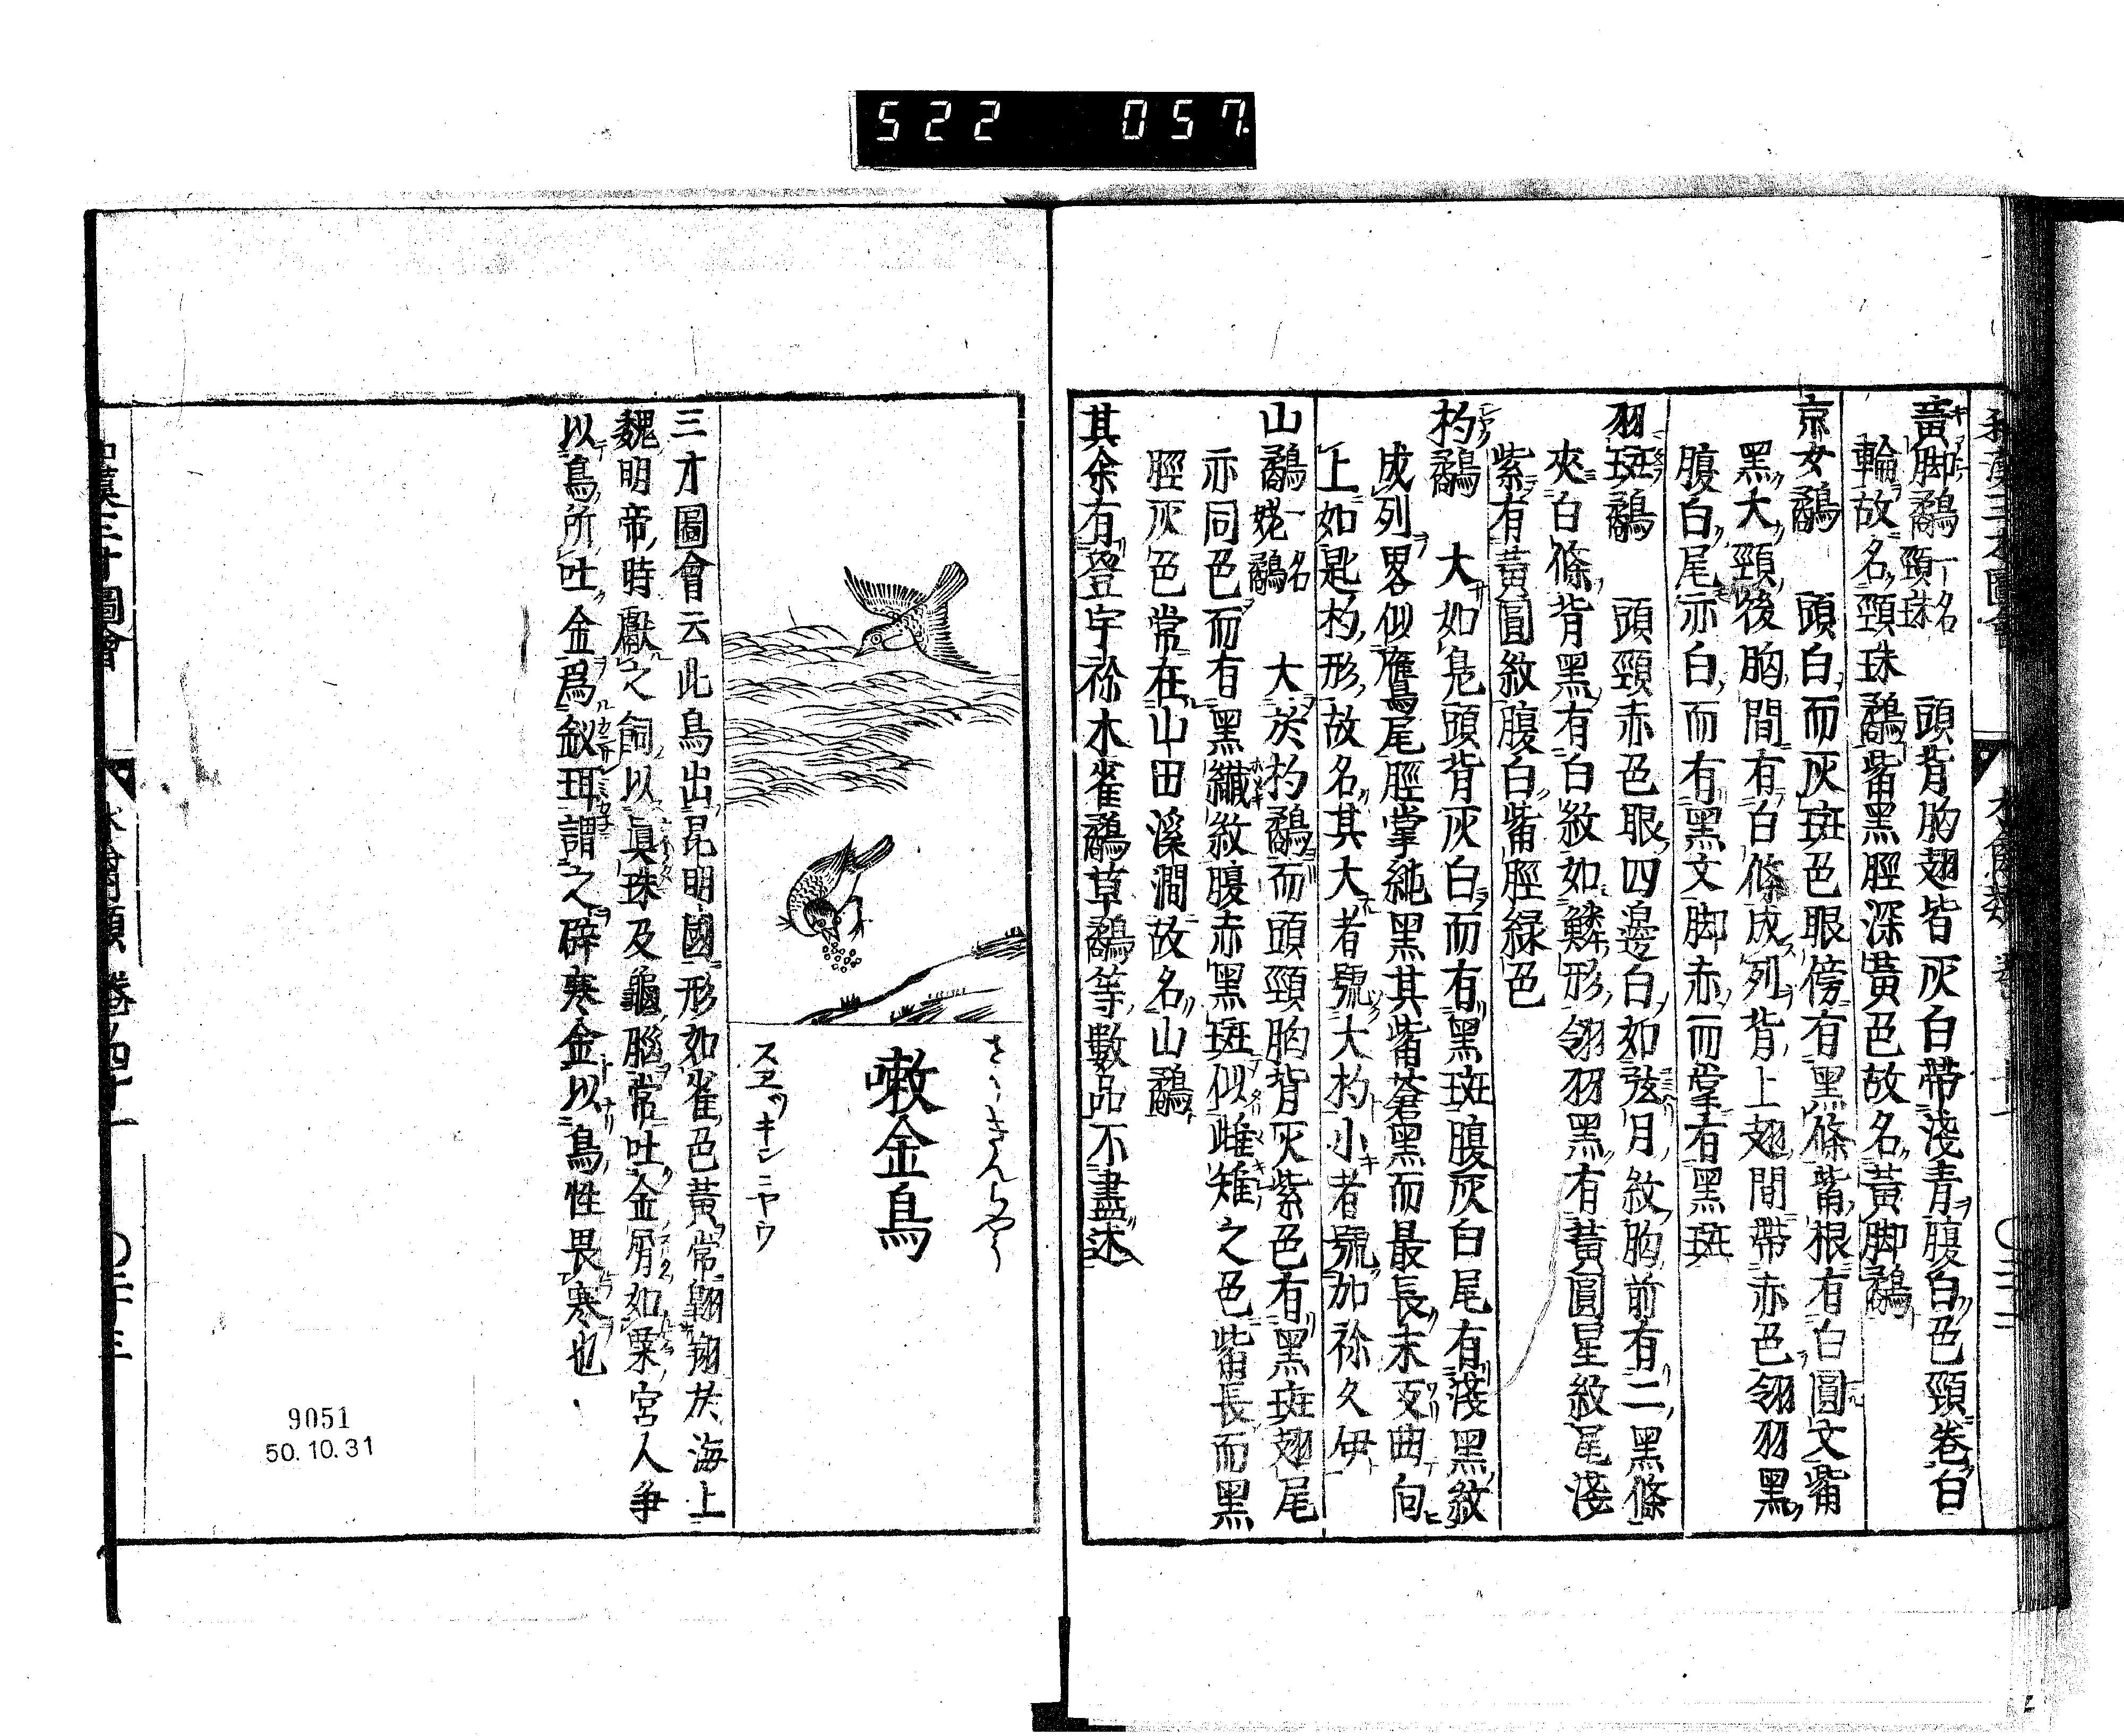 522 057
黃脚鷸 一名頸珠 頭背胸翅皆灰白帶淺青腹白色頸卷白
輪故名頸珠鷸觜黑脛深黃色故名黃脚鷸
京女鷸 頭白而灰斑色眼傍有黑條觜根有白圓文觜
黑大頸後胸間有白條成列背上翅間帶赤色翎羽黑
腹白尾亦白而有黑文脚赤而掌有黑斑
羽斑鷸 頭頸赤色眼四邊白如弦月紋胸前有二黑條
夾白條背黑有白紋如鱗形翎羽黑有黃圓星紋尾淺
紫有黃圓紋腹白觜脛綠色
杓鷸 大如鳧頭背灰白而有黑斑腹灰白尾有淺黑紋
成列畧似鴈尾脛掌純黑其觜蒼黑而最長末反曲向
上如匙杓形故名其大者號大杓小者號加祢久伊
山鷸 一名姥鷸 大於杓鷸而頭頸胸背灰紫色有黑斑翅尾
亦同色而有黑纎紋腹赤黑斑似雌雉之色觜長而黑
脛灰色常在山田溪澗故名山鷸
其余有登宇祢木雀鷸草鷸等數品不盡述
さゝきんちやう
嗽金鳥
スヱツキンニヤウ
三才圖會云此鳥出昆明國形如雀色黃常翺翔於海上
魏明帝時獻之飼以眞珠及龜腦常吐金屑如粟宮人争
以鳥所吐金爲釵珥謂之辟寒金以鳥性畏寒也
和漢三才圖會 水禽類 卷四十一
9051
50.10.31